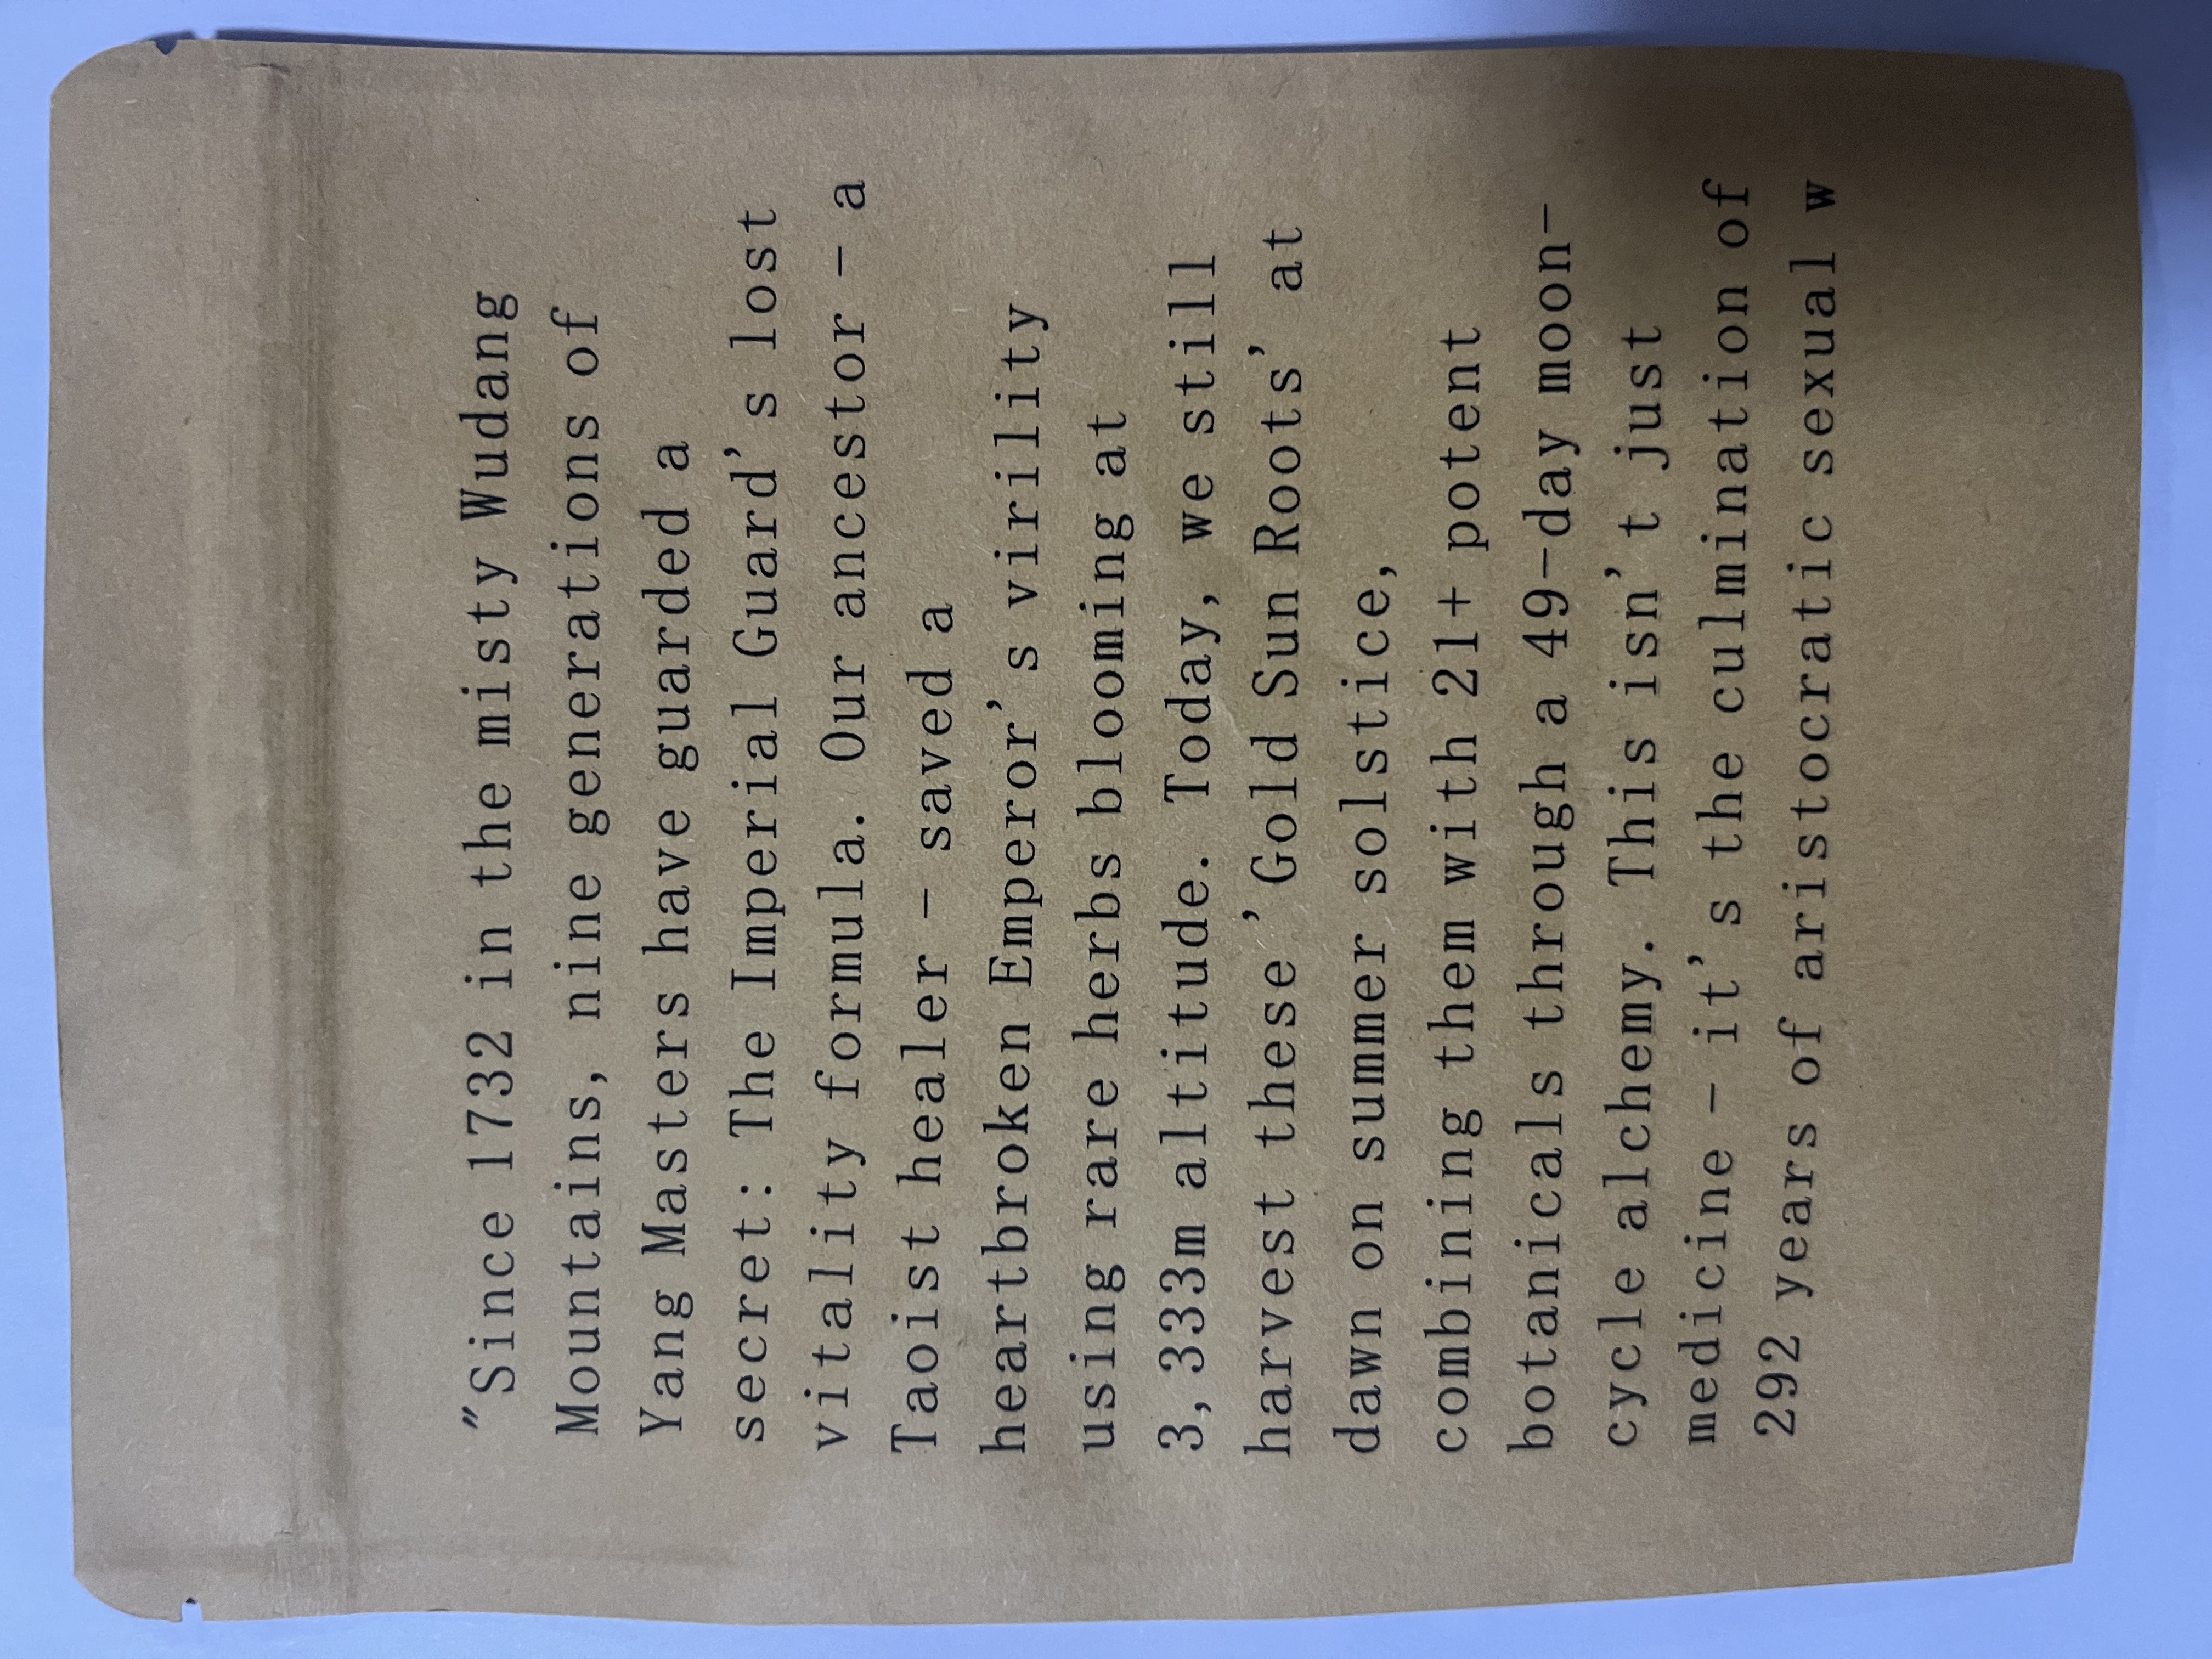 "Since 1732 in the misty Wudang
Mountains, nine generations of
Yang Masters have guarded a
secret: The Imperial Guard's lost
vitality formula. Our ancestor - a
Taoist healer - saved a
heartbroken Emperor's virility
using rare herbs blooming at
3,333m altitude. Today, we still
harvest these 'Gold Sun Roots' at
dawn on summer solstice,
combining them with 21+ potent
botanicals through a 49-day moon-
cycle alchemy. This isn't just
medicine - it's the culmination of
292 years of aristocratic sexual w